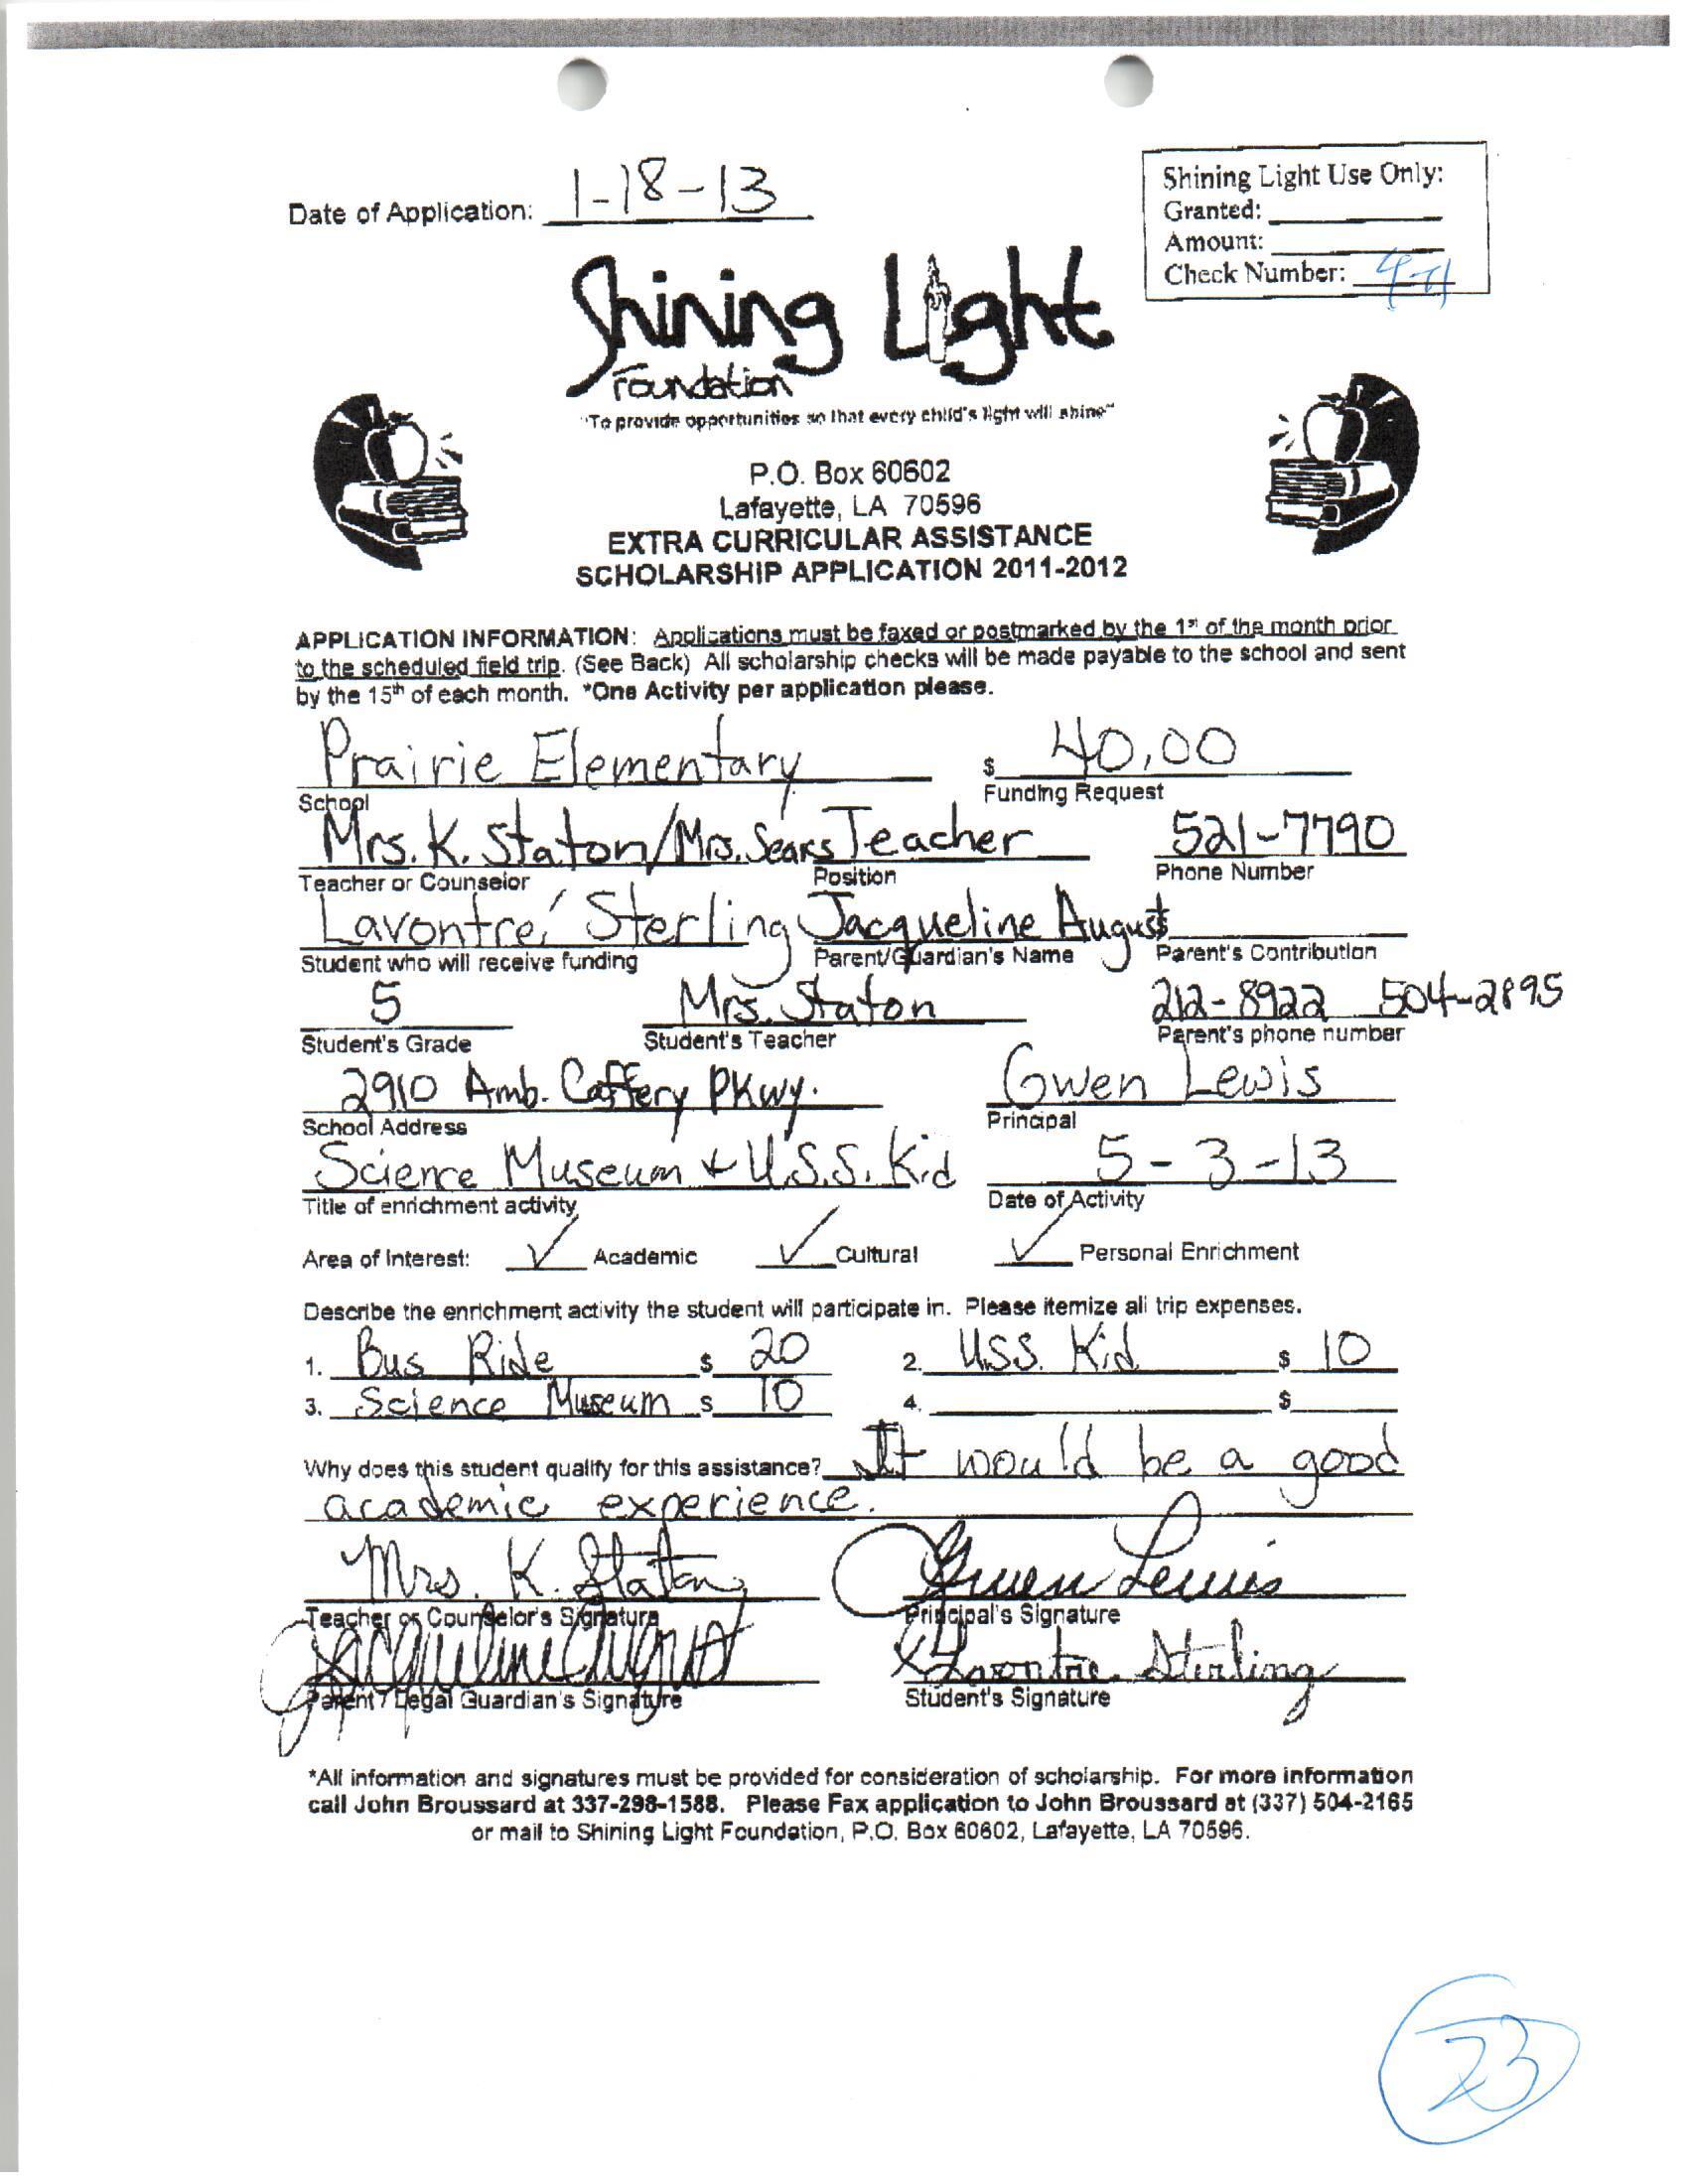 Date of Application: 1-18-13
Shining Light Use Only:
Granted:
Amount:
Check Number:
Shining Light
Foundation
"To provide opportunities so that every child's light will shine"
P.O. Box 60602
Lafayette, LA 70596
EXTRA CURRICULAR ASSISTANCE
SCHOLARSHIP APPLICATION 2011-2012
APPLICATION INFORMATION: Applications must be faxed or postmarked by the 1st of the month prior
to the scheduled field trip. (See Back) All scholarship checks will be made payable to the school and sent
by the 15th of each month. *One Activity per application please.
Prairie Elementary $ 40.00
School Funding Request
Mrs. K. Staton/Mrs. Sears Teacher 521-7790
Teacher or Counselor Position Phone Number
Lavontre' Sterling Jacqueline August
Student who will receive funding Parent/Guardian's Name Parent's Contribution
5 Mrs. Staton 212-8922 504-2895
Student's Grade Student's Teacher Parent's phone number
2910 Amb. Caffery Pkwy. Gwen Lewis
School Address Principal
Science Museum + U.S.S. Kid 5-3-13
Title of enrichment activity Date of Activity
Area of Interest: ✓ Academic ✓ Cultural ✓ Personal Enrichment
Describe the enrichment activity the student will participate in. Please itemize all trip expenses.
1. Bus Ride $ 20 2. USS. Kid $ 10
3. Science Museum $ 10 4. $
Why does this student qualify for this assistance? It would be a good
academic experience.
Mrs. K. Staton Gwen Lewis
Teacher or Counselor's Signature Principal's Signature
Jacqueline August Lavontre Sterling
Parent / Legal Guardian's Signature Student's Signature
*All information and signatures must be provided for consideration of scholarship. For more information
call John Broussard at 337-298-1588. Please Fax application to John Broussard at (337) 504-2165
or mail to Shining Light Foundation, P.O. Box 60602, Lafayette, LA 70596.
23